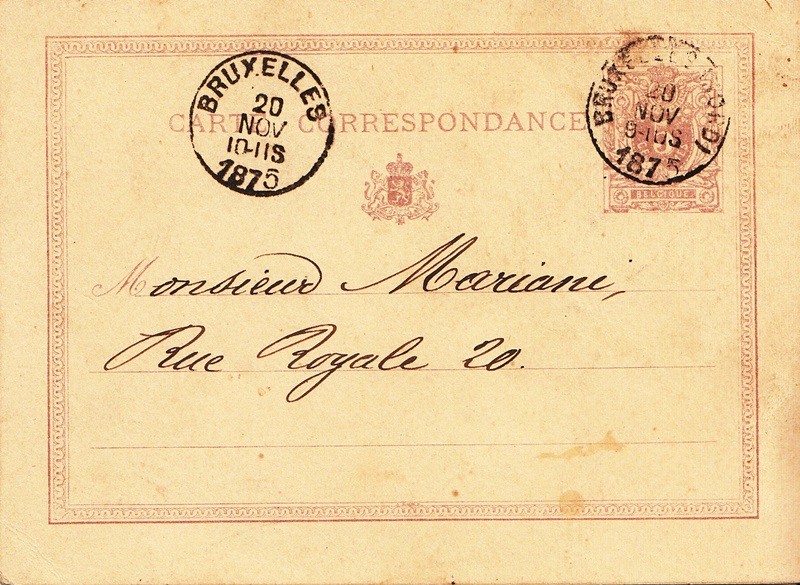 BRUXELLES
20
NOV
10-11S
1875
BRUXELLES (NORD)
20
NOV
1875
CARTE CORRESPONDANCE
BELGIQUE
Monsieur Mariani,
Rue Royale 20.